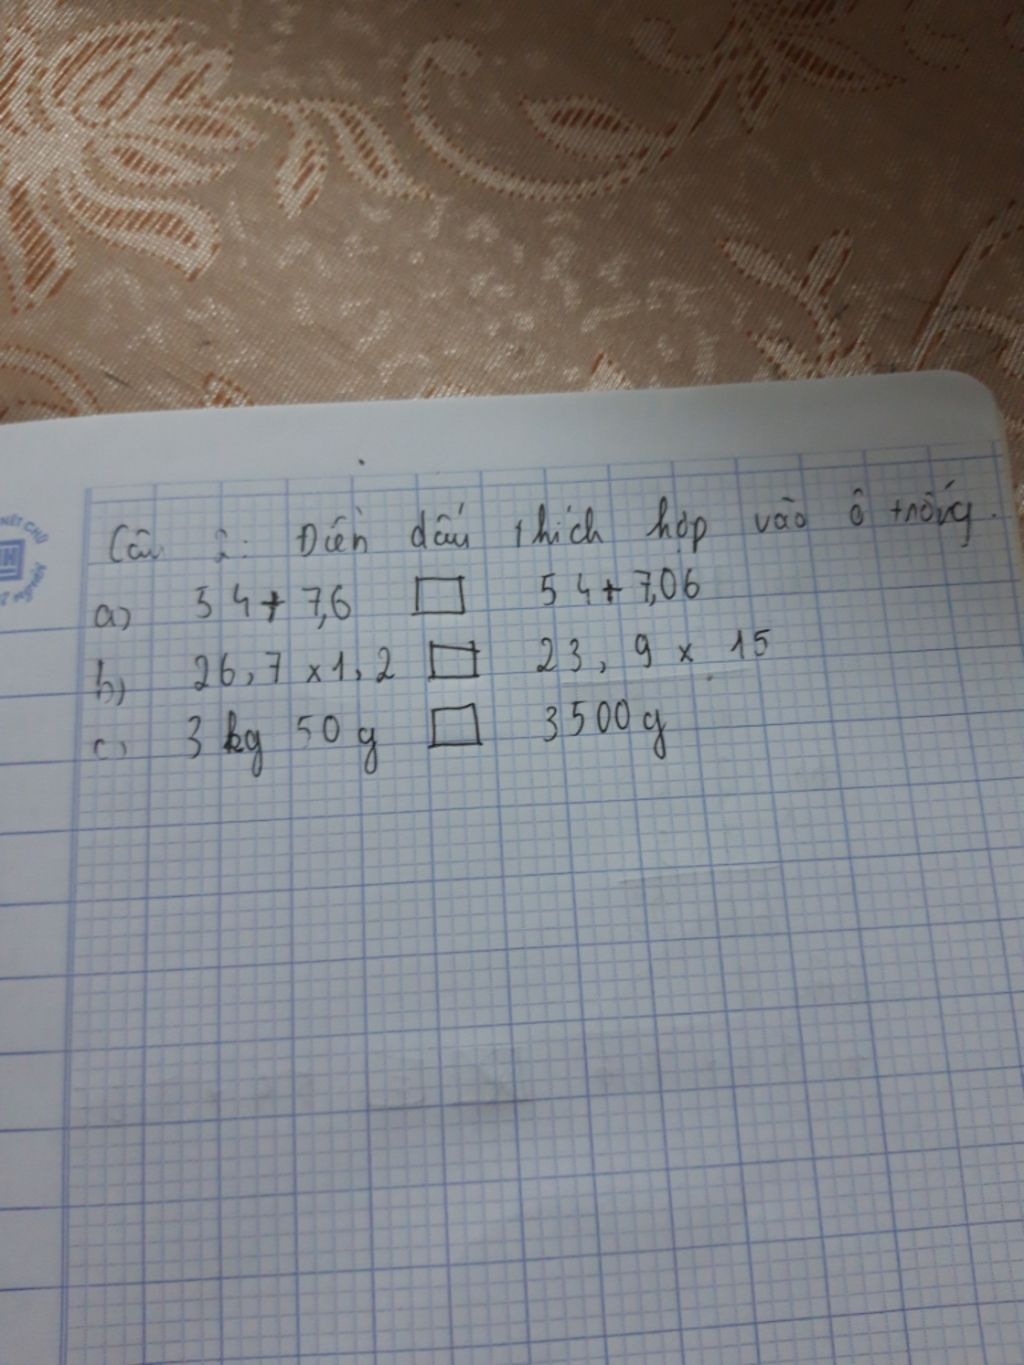 Câu 2: Điền dấu thích hợp vào ô trống.
a) 54 + 7,6 □ 54 + 7,06
b) 26,7 x 1,2 □ 23,9 x 15
c) 3 kg 50 g □ 3500 g
NÉT CHỮ